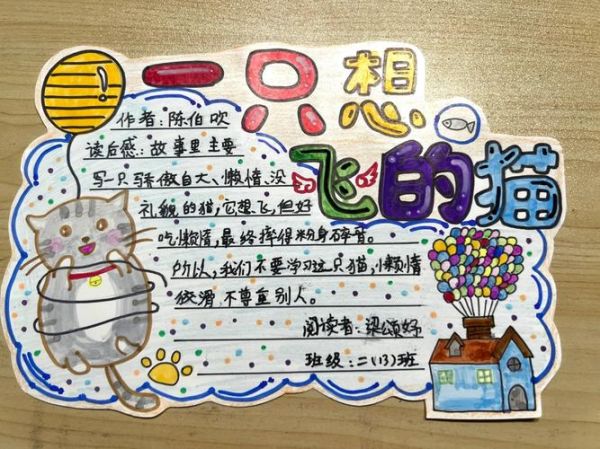 一只想
飞的猫
作者:陈伯吹
读后感:故事里主要
写一只骄傲自大、懒惰、没
礼貌的猫,它想飞,但好
吃懒惰,最终摔得粉身碎骨。
所以,我们不要学习这只猫,懒惰
狡滑,不尊重别人。
阅读者:梁颂妤
班级:二(13)班